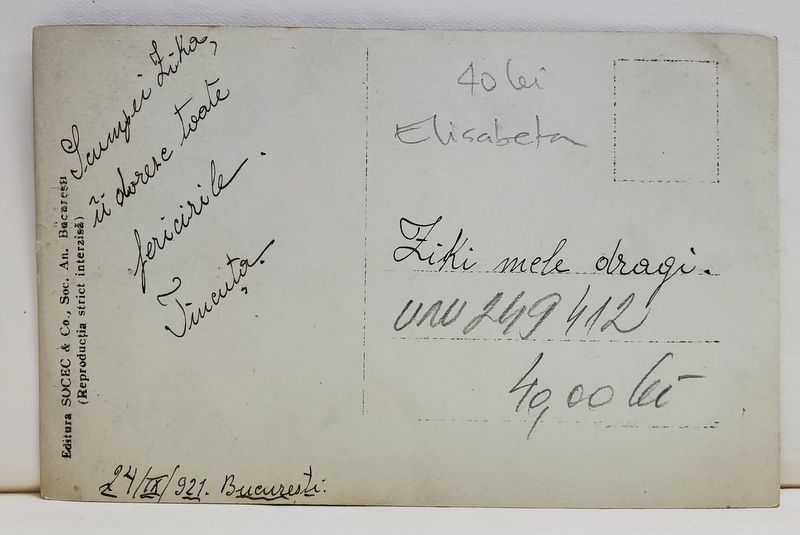 Scumpei Zika,
îi doresc toate
fericirile.
Tincuța.
24/IX/921. București.
Editura SOCEC & Co., Soc. An. București
(Reproducția strict interzisă)
40 lei
Elisabeta
Ziki mele dragi.
249412
40,00 lei